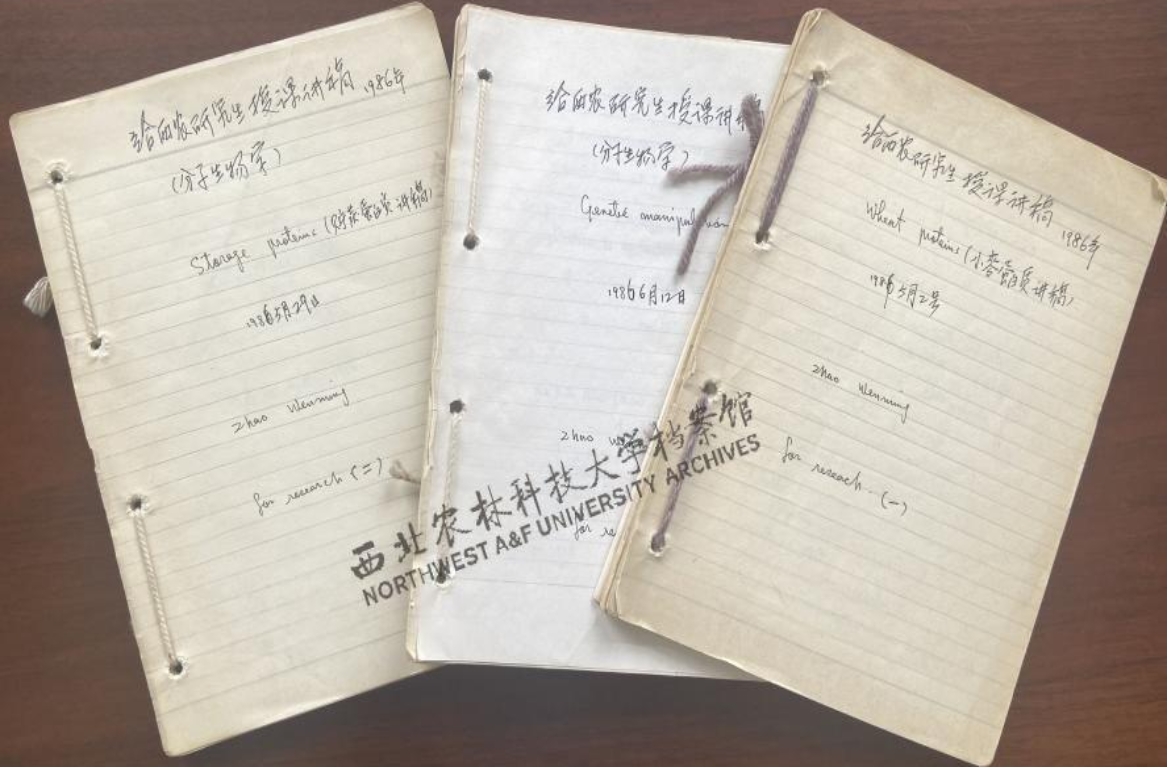 给西农研究生授课讲稿 1986年
(分子生物学)
Storage proteins (贮藏蛋白质讲稿)
1986 5月29日
Zhao Wenming
for research (二)
给西农研究生授课讲稿
(分子生物学)
Genetic manipulation
1986 6月12日
Zhao
for
给西农研究生授课讲稿 1986年
Wheat proteins (小麦蛋白质讲稿)
1986 5月2号
Zhao Wenming
for research (一)
西北农林科技大学档案馆
NORTHWEST A&F UNIVERSITY ARCHIVES